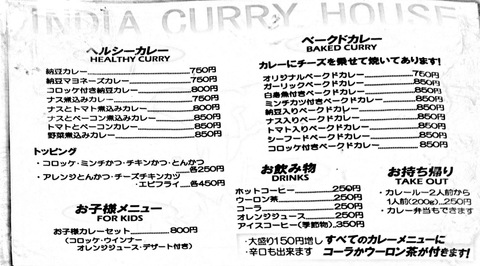 INDIA CURRY HOUSE
ヘルシーカレー
HEALTHY CURRY
納豆カレー 750円
納豆マヨネーズカレー 750円
コロッケ付き納豆カレー 800円
ナス煮込みカレー 750円
ナスとトマト煮込みカレー 800円
ナスとベーコン煮込カレー 850円
トマトとベーコンカレー 850円
野菜煮込みカレー 850円
トッピング
・コロッケ・ミンチかつ・チキンかつ・とんかつ
各250円
・アレンジとんかつ・チーズチキンカツ
・エビフライ 各450円
お子様メニュー
FOR KIDS
お子様カレーセット 800円
(コロッケ・ウインナー
オレンジジュース・デザート付き)
ベークドカレー
BAKED CURRY
カレーにチーズを乗せて焼いてあります!
オリジナルベークドカレー 750円
ガーリックベークドカレー 850円
白身魚付きベークドカレー 850円
ミンチカツ付きベークドカレー 850円
納豆入りベークドカレー 850円
ナス入りベークドカレー 850円
トマト入りベークドカレー 850円
シーフードベークドカレー 850円
コロッケ付きベークドカレー 850円
お飲み物
DRINKS
ホットコーヒー 250円
ウーロン茶 250円
コーラ 250円
オレンジジュース 250円
アイスコーヒー(季節物) 350円
お持ち帰り
TAKE OUT
・カレールー2人前から
1人前(200g)...250円
・カレー弁当もできます
・大盛り150円増し
・辛口も出来ます
すべてのカレーメニューに
コーラかウーロン茶が付きます!